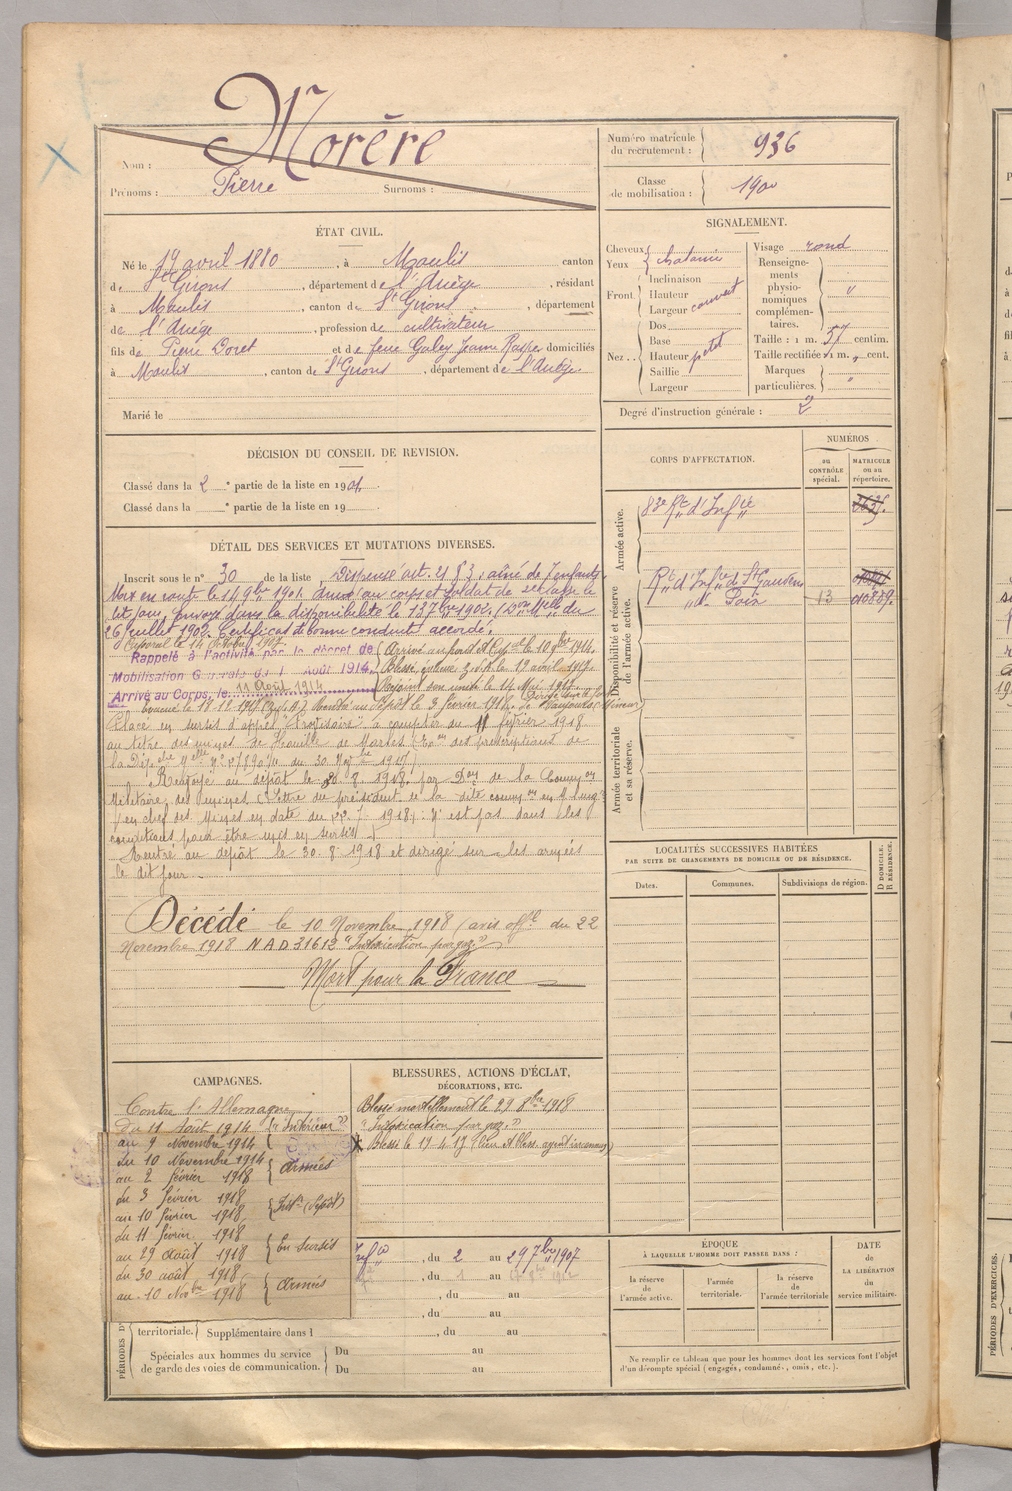 Nom : Morère
Prénoms : Pierre Surnoms :
Numéro matricule du recrutement : 936
Classe de mobilisation : 1900
ÉTAT CIVIL.
Né le 19 avril 1880, à Moulis canton
de St Girons, département de l'Ariège, résidant
à Moulis, canton de St Girons, département
de l'Ariège, profession de cultivateur
fils de Pierre Doret et de feue Galey Jeanne domiciliés
à Moulis, canton de St Girons, département de l'Ariège.
Marié le
SIGNALEMENT.
Cheveux
Yeux châtains
Front Inclinaison
Hauteur
Largeur couvert
Nez Dos
Base
Hauteur petit
Saillie
Largeur
Visage rond
Renseignements physionomiques complémentaires. "
Taille : 1 m. 57 centim.
Taille rectifiée : 1 m. " cent.
Marques particulières. "
Degré d'instruction générale : 2
DÉCISION DU CONSEIL DE REVISION.
Classé dans la 2e partie de la liste en 1901.
Classé dans la e partie de la liste en 19
CORPS D'AFFECTATION.
NUMÉROS
au CONTRÔLE spécial.
MATRICULE ou au répertoire.
Armée active.
83e Rt d'Infie
Disponibilité et réserve de l'armée active.
Rt d'Infie de St Gaudens
" de Foix 13
Armée territoriale et sa réserve.
DÉTAIL DES SERVICES ET MUTATIONS DIVERSES.
Inscrit sous le n° 30 de la liste, Dispensé art. 21 § 3, aîné de 7 enfants.
Mis en route le 14 9bre 1901. Arrivé au corps et soldat de 2e classe le
dit jour. Envoyé dans la disponibilité le 13 7bre 1902. (Don Mlle du
26 juillet 1902. Certificat de bonne conduite accordé.
Caporal le 14 Octobre 1907
Rappelé à l'activité par le décret de
Mobilisation Générale du 1 Août 1914.
Arrivé au Corps, le 11 Août 1914
le 10 9bre 1914.
Blessé le 19 avril 1917.
Rejoint son unité le 14 Mai 1917.
au dépôt le 3 février 1918.
Placé en sursis d'appel "Provisoire" à compter du 11 février 1918
au titre des mines de houille de (Eon des prescriptions de
la Dépêche Mlle du 30 1917)
au dépôt le 30 8 1918. par Don de la Common
Militaire des mines (Lettre du président de la dite common
en chef des Mines en date du 1918) : N'est pas dans les
conditions pour être mis en sursis
Rentré au dépôt le 30. 8 1918 et dirigé sur les armées
le dit jour.
Décédé le 10 Novembre 1918 (avis offel du 22
Novembre 1918 NAD 31612 "Intoxication par gaz")
Mort pour la France
LOCALITÉS SUCCESSIVES HABITÉES
PAR SUITE DE CHANGEMENTS DE DOMICILE OU DE RÉSIDENCE.
Dates. Communes. Subdivisions de région. D DOMICILE. R RÉSIDENCE.
CAMPAGNES.
Contre l'Allemagne
Du 11 Août 1914 "Intérieur"
au 9 Novembre 1914
du 10 Novembre 1914 Armées
au 2 février 1918
du 3 février 1918 Intr (Dépôt)
au 10 février 1918
du 11 février 1918 En Sursis
au 29 août 1918
du 30 août 1918 Armées
au 10 Novbre 1918
BLESSURES, ACTIONS D'ÉCLAT,
DÉCORATIONS, ETC.
Blessé mortellement le 29 8bre 1918
"Intoxication par gaz."
Blessé le 19-4-17 (lieu et bless. ayant inconnus)
, du 2 au 29 7bre 1907
, du 1 au
, du au
, du au
territoriale. Supplémentaire dans l , du au
Spéciales aux hommes du service de garde des voies de communication. Du au
Du au
ÉPOQUE
À LAQUELLE L'HOMME DOIT PASSER DANS :
la réserve de l'armée active.
l'armée territoriale.
la réserve de l'armée territoriale
DATE
DE
LA LIBÉRATION
du
service militaire.
Ne remplir ce tableau que pour les hommes dont les services font l'objet
d'un décompte spécial (engagés, condamnés, omis, etc.).
PÉRIODES D'EXERCICES.